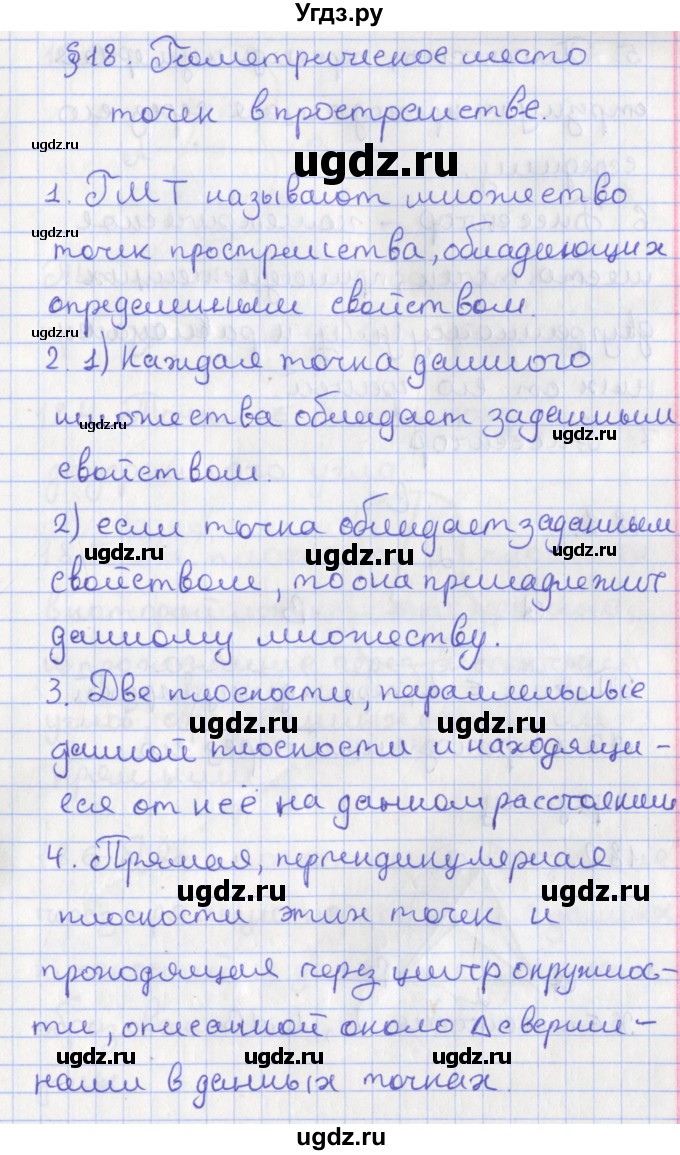 Угдз.ру
§18. Геометрическое место
точек в пространстве.
ugdz.ru
ugdz.ru
1. ГМТ называют множество
ugdz.ru
точек пространства, обладающих
определенным свойством.
ugdz.ru
2. 1) Каждая точка данного
множества обладает заданным
ugdz.ru ugdz.ru
свойством.
2) если точка обладает заданным
ugdz.ru ugdz.ru ugdz.ru
свойством, то она принадлежит
данному множеству.
3. Две плоскости, параллельные
ugdz.ru ugdz.ru
данной плоскости и находящи-
еся от неё на данном расстоянии
4. Прямая, перпендикулярная
ugdz.ru ugdz.ru
плоскости этих точек и
проходящая через центр окружнос-
ти, описанной около Δ с верши-
ugdz.ru ugdz.ru ugdz.ru
нами в данных точках.
ugdz.ru